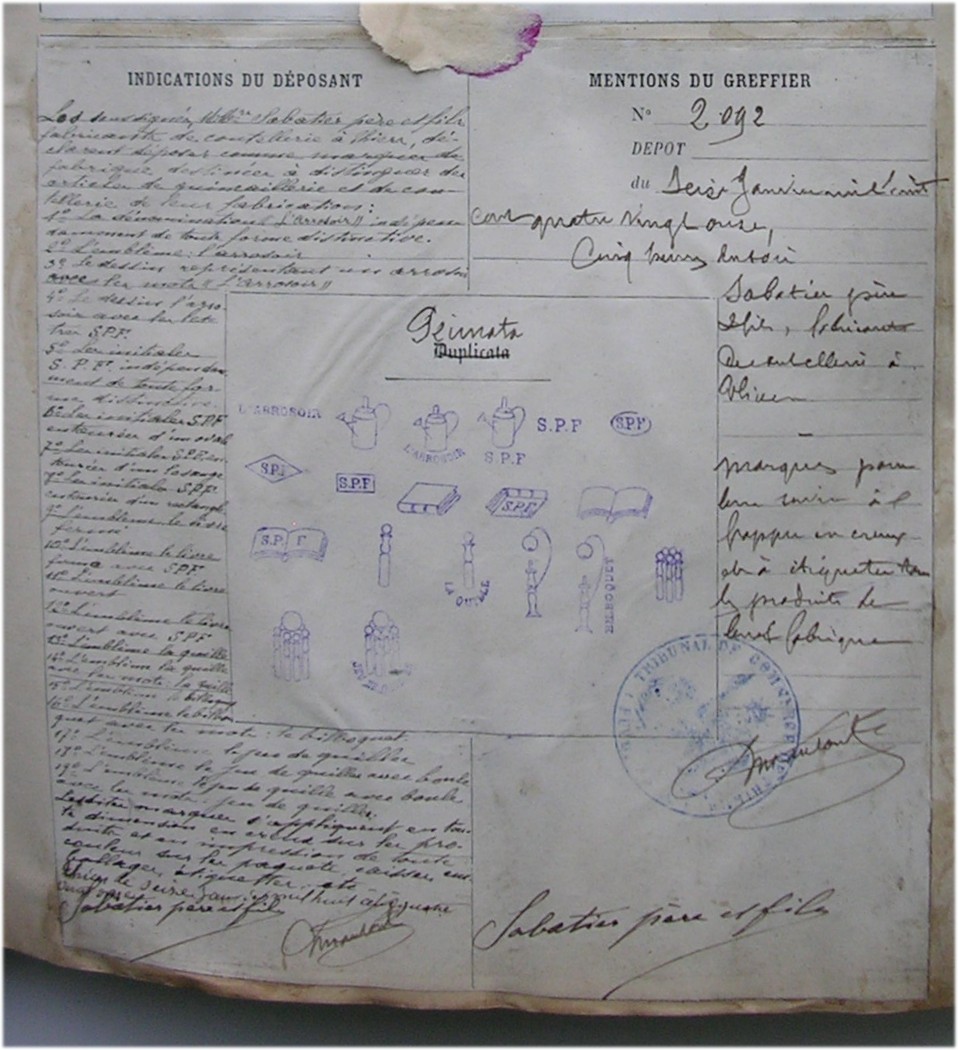 INDICATIONS DU DÉPOSANT
Les soussignés, Sabatier père et fils
fabricants de coutellerie à Thiers, dé-
clarent déposer comme marques de
fabrique destinées à distinguer des
articles de quincaillerie et de cou-
tellerie de leur fabrication:
1° La dénomination "L'arrosoir" indépen-
damment de toute forme distinctive.
2° L'emblème: l'arrosoir
3° Le dessin représentant un arrosoir
avec les mots "L'arrosoir"
4° Le dessin l'arro-
soir avec les let-
tres S.P.F.
5° Les initiales
S.P.F. indépendam-
ment de toute for-
me distinctive.
6° Les initiales S.P.F
entourées d'un ovale
7° Les initiales S.P.F. en-
tourées d'un losange
8° Les initiales S.P.F.
entourées d'un rectangle
9° L'emblème le livre
fermé
10° L'emblème le livre
fermé avec SPF
11° L'emblème le livre
ouvert
12° L'emblème le livre
ouvert avec SPF
13° L'emblème la quille
14° L'emblème la quille
avec les mots: la quille
15° L'emblème le bilboquet
16° L'emblème le bilbo-
quet avec le mot: le bilboquet
17° L'emblème le jeu de quilles
18° L'emblème le jeu de quilles avec boule
19° L'emblème le jeu de quille avec boule
avec les mots: jeu de quilles.
Lesdites marques s'appliquent en tou-
te dimension en creux sur les pro-
duits et en impression de toute
couleur sur les paquets, caisses, em-
ballages, étiquettes, etc
Thiers le seize janvier mil huit cent quatre
vingt onze
Sabatier père et fils
MENTIONS DU GREFFIER
N° 2.092
DEPOT
du Seize Janvier mil huit
cent quatre vingt onze,
Cinq heures
Sabatier père
et fils, fabricants
de coutellerie à
Thiers
marques pour
leur servir à
frapper en creux
et à étiqueter tous
les produits de
leur fabrique
Primata
Duplicata
L'ARROSOIR
L'ARROSOIR
S.P.F
S.P.F
S.P.F
S.P.F
S.P.F
S.P.F
S.P.F
LA QUILLE
BILBOQUET
JEU DE QUILLES
TRIBUNAL DE COMMERCE
THIERS
Sabatier père et fils